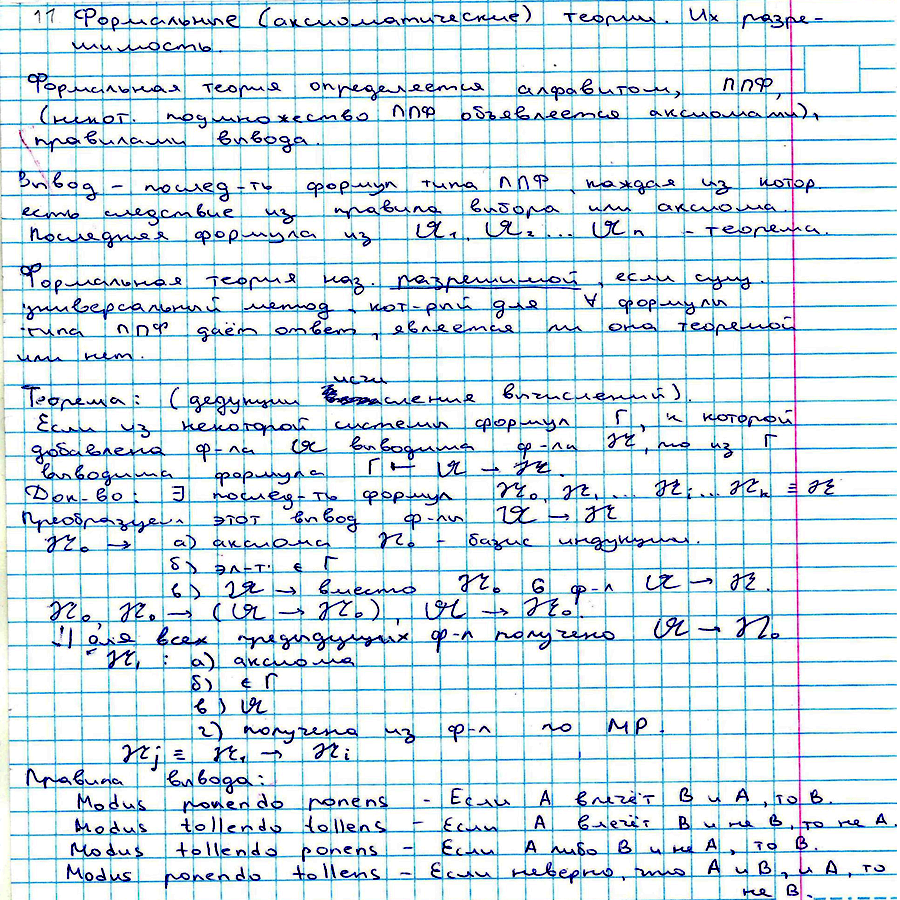 11 Формальные (аксиоматические) теории. Их разре-
шимость.
Формальная теория определяется алфавитом, ППФ,
(некот. подмножество ППФ объявляется аксиомами),
правилами вывода.
Вывод – послед-ть формул типа ППФ, каждая из котор.
есть следствие из правила вывора или аксиома.
Последняя формула из 𝔄₁, 𝔄₂ ... 𝔄n – теорема.
Формальная теория наз. разрешимой, если сущ.
универсальный метод, кот-рый для ∀ формулы
типа ППФ даёт ответ, является ли она теоремой
или нет.
Теорема: (дедукции исчисление вычислений).
Если из некоторой системы формул Г, к которой
добавлена ф-ла 𝔄 выводима ф-ла ℋ, то из Г
выводима формула Г ⊢ 𝔄 → ℋ.
Док-во: ∃ послед-ть формул ℋ₀, ℋ₁ ... ℋi ... ℋk ≡ ℋ
Преобразуем этот вывод ф-лы 𝔄 → ℋ
ℋ₀ → а) аксиома ℋ₀ – базис индукции.
б) эл-т. ∈ Г
в) 𝔄 → вместо ℋ₀ 6 ф-л 𝔄 → ℋ.
ℋ₀, ℋ₀ → (𝔄 → ℋ₀), 𝔄 → ℋ₀
для всех предыдущих ф-л получено 𝔄 → ℋ₀
ℋ₁ : а) аксиома
б) ∈ Г
в) 𝔄
г) получена из ф-л по МР.
ℋj ≡ ℋ₁ → ℋi
Правила вывода:
Modus ponendo ponens – Если А влечёт В и А, то В.
Modus tollendo tollens – Если А влечёт В и не В, то не А.
Modus tollendo ponens – Если А либо В и не А, то В.
Modus ponendo tollens – Если неверно, что А и В, и А, то
не В.